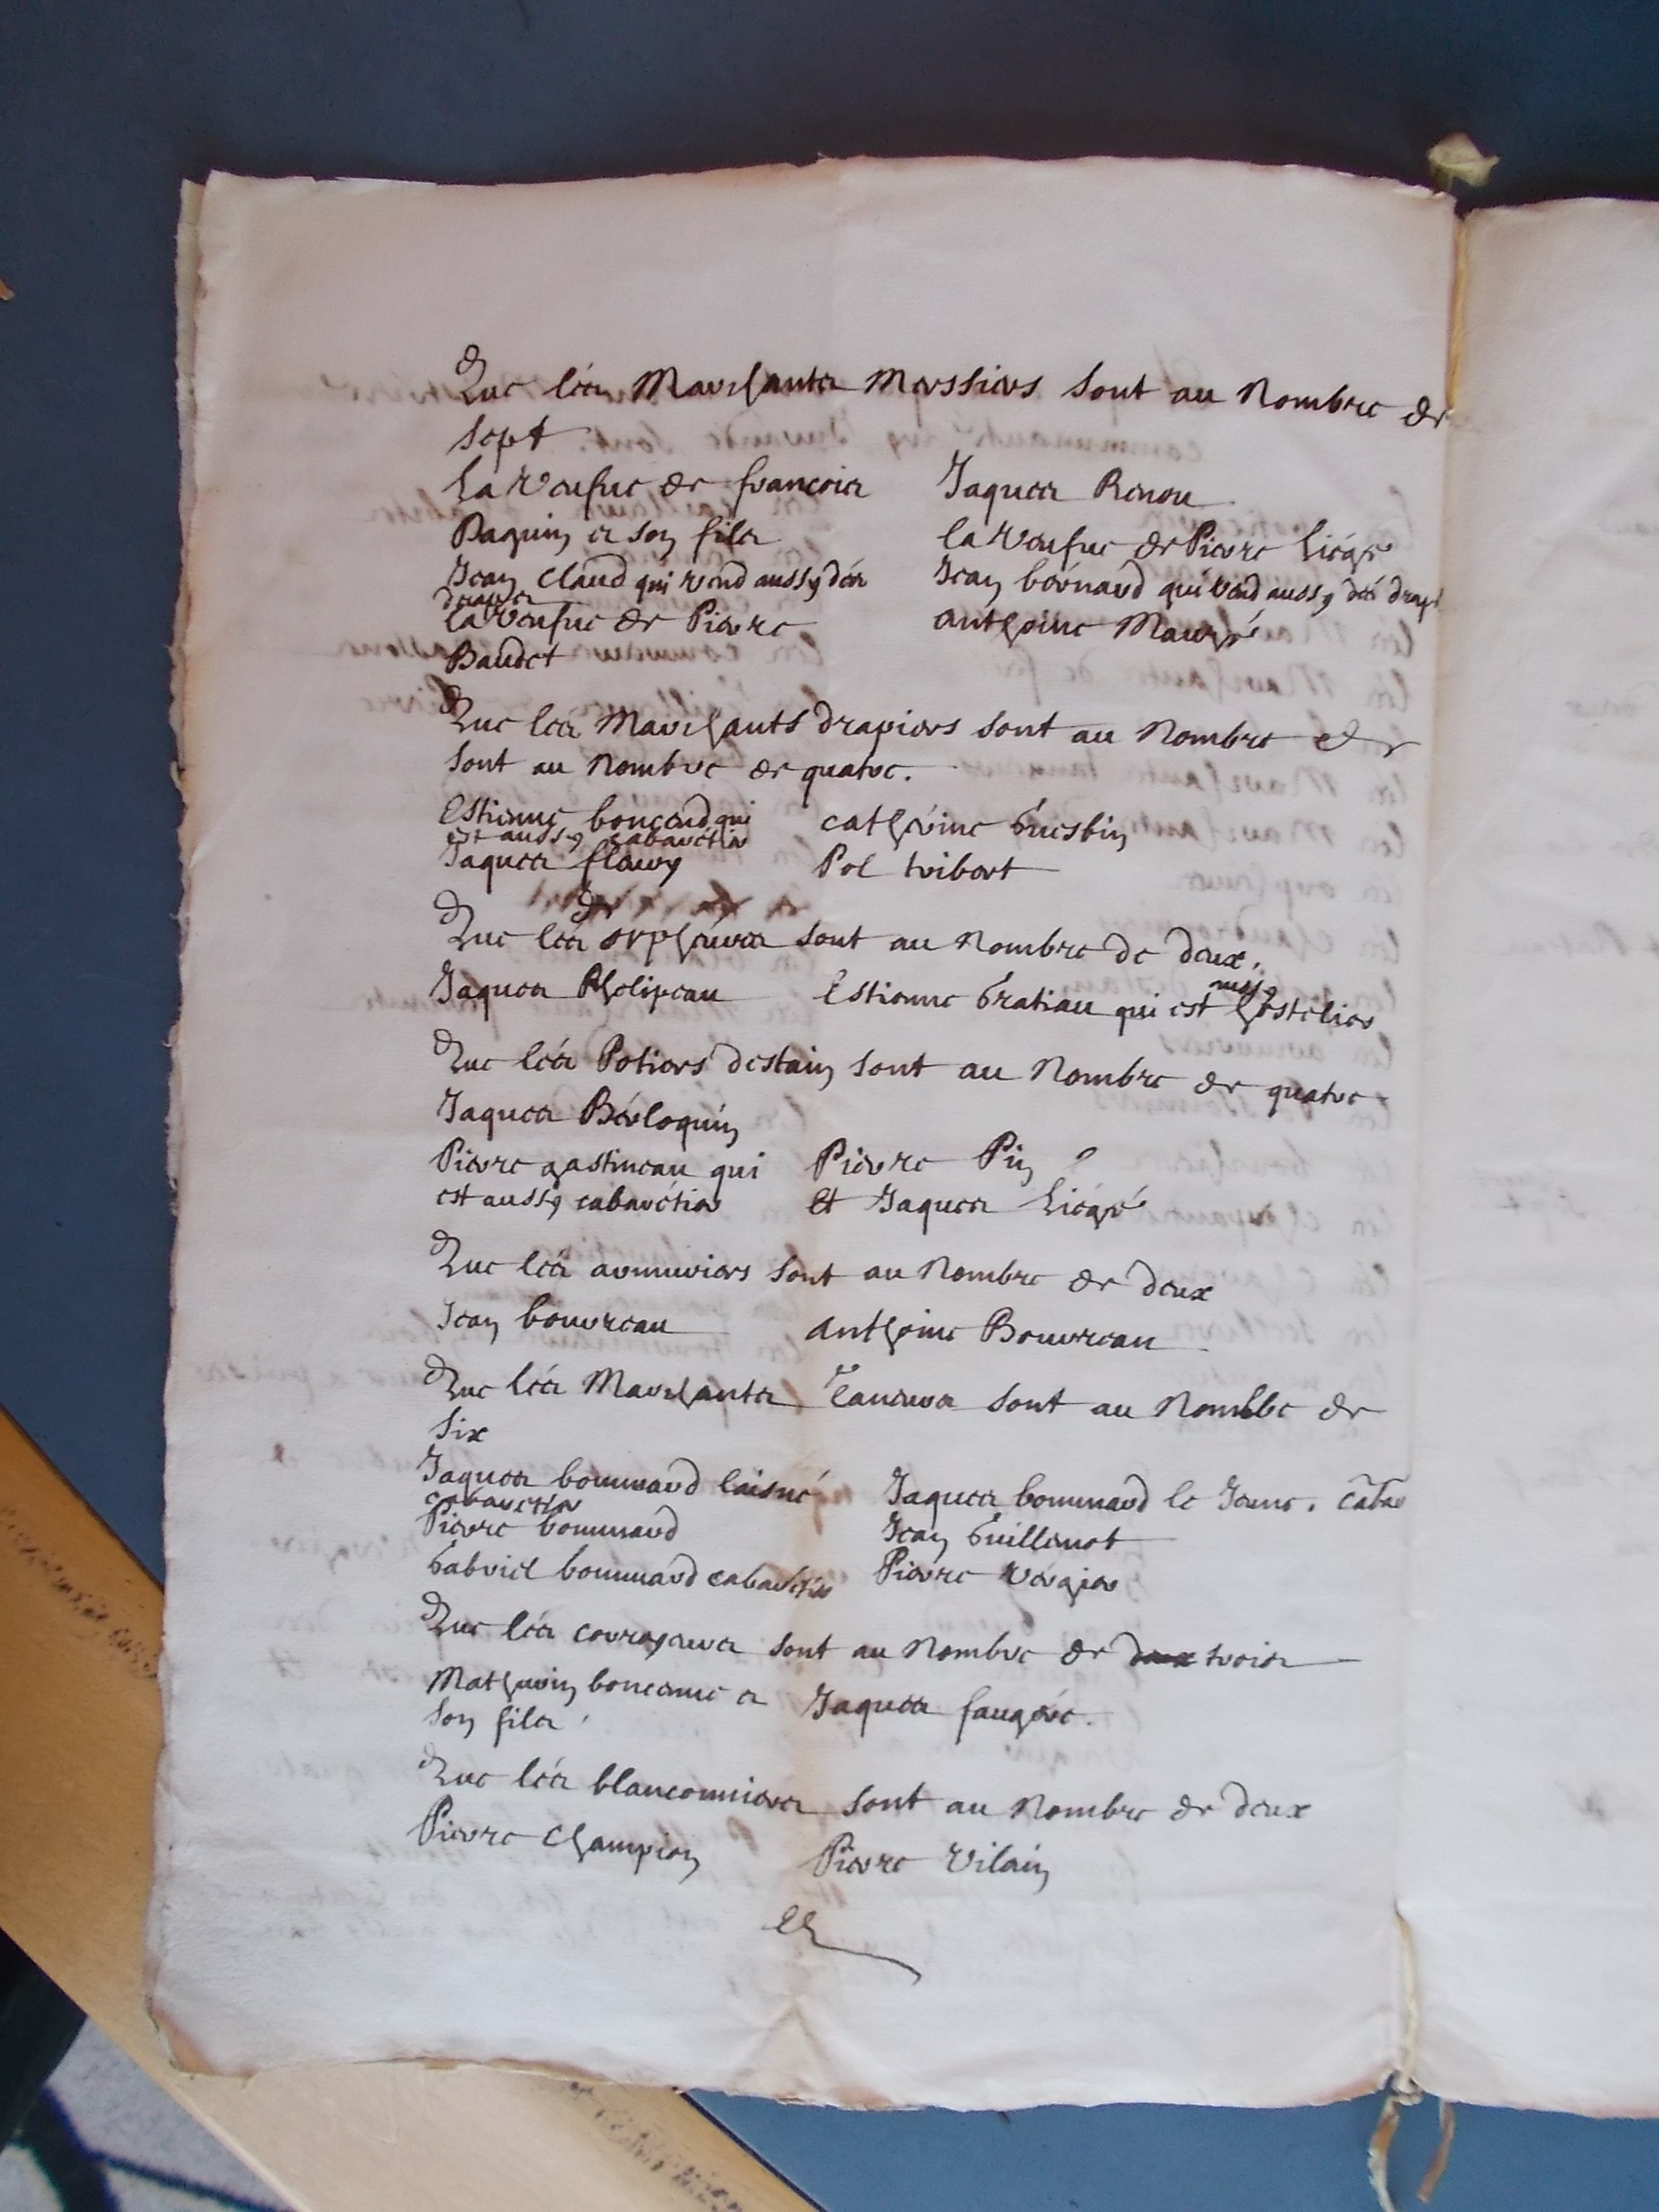 Que les Marchants Merssiers sont au Nombre de
sept
la veufue de francois Jaques Renou
Paquin et son filz la veufue de Pierre Liégé
Jean Claud qui vend aussy des Jean bérnard qui vend aussy des drap
drapz
la veufue de Pierre anthoine Maugé
Baudet
Que les Marchants drapiers sont au Nombre de
sont au Nombre de quatre.
Estienne boncend qui catherine Guesbin
est aussy cabaretier
Jaques fleury Pol tribert
Que les orpheures sont au Nombre de deux.
Jaques Phelipeau Estienne Gratiau qui est aussy hostelier
Que les Potiers destain sont au Nombre de quatre
Jaques Berloquin
Pierre gastineau qui Pierre Pin
est aussy cabaretier Et Jaques Liégé
Que les armuriers sont au Nombre de deux
Jean bouvreau anthoine Bouvreau
Que les Marchants Taneurs sont au Nombre de
six
Jaques bonnard laisné Jaques bonnard le Jeune. Cabar
cabaretier
Pierre bonnard Jean Guillemot
Gabriel bonnard cabaretier Pierre Verger
Que les couroyeurs sont au Nombre de deux trois
Mathurin bonenne et Jaques faugére.
son filz
Que les blanconniers sont au Nombre de deux
Pierre Champion Pierre Vilain